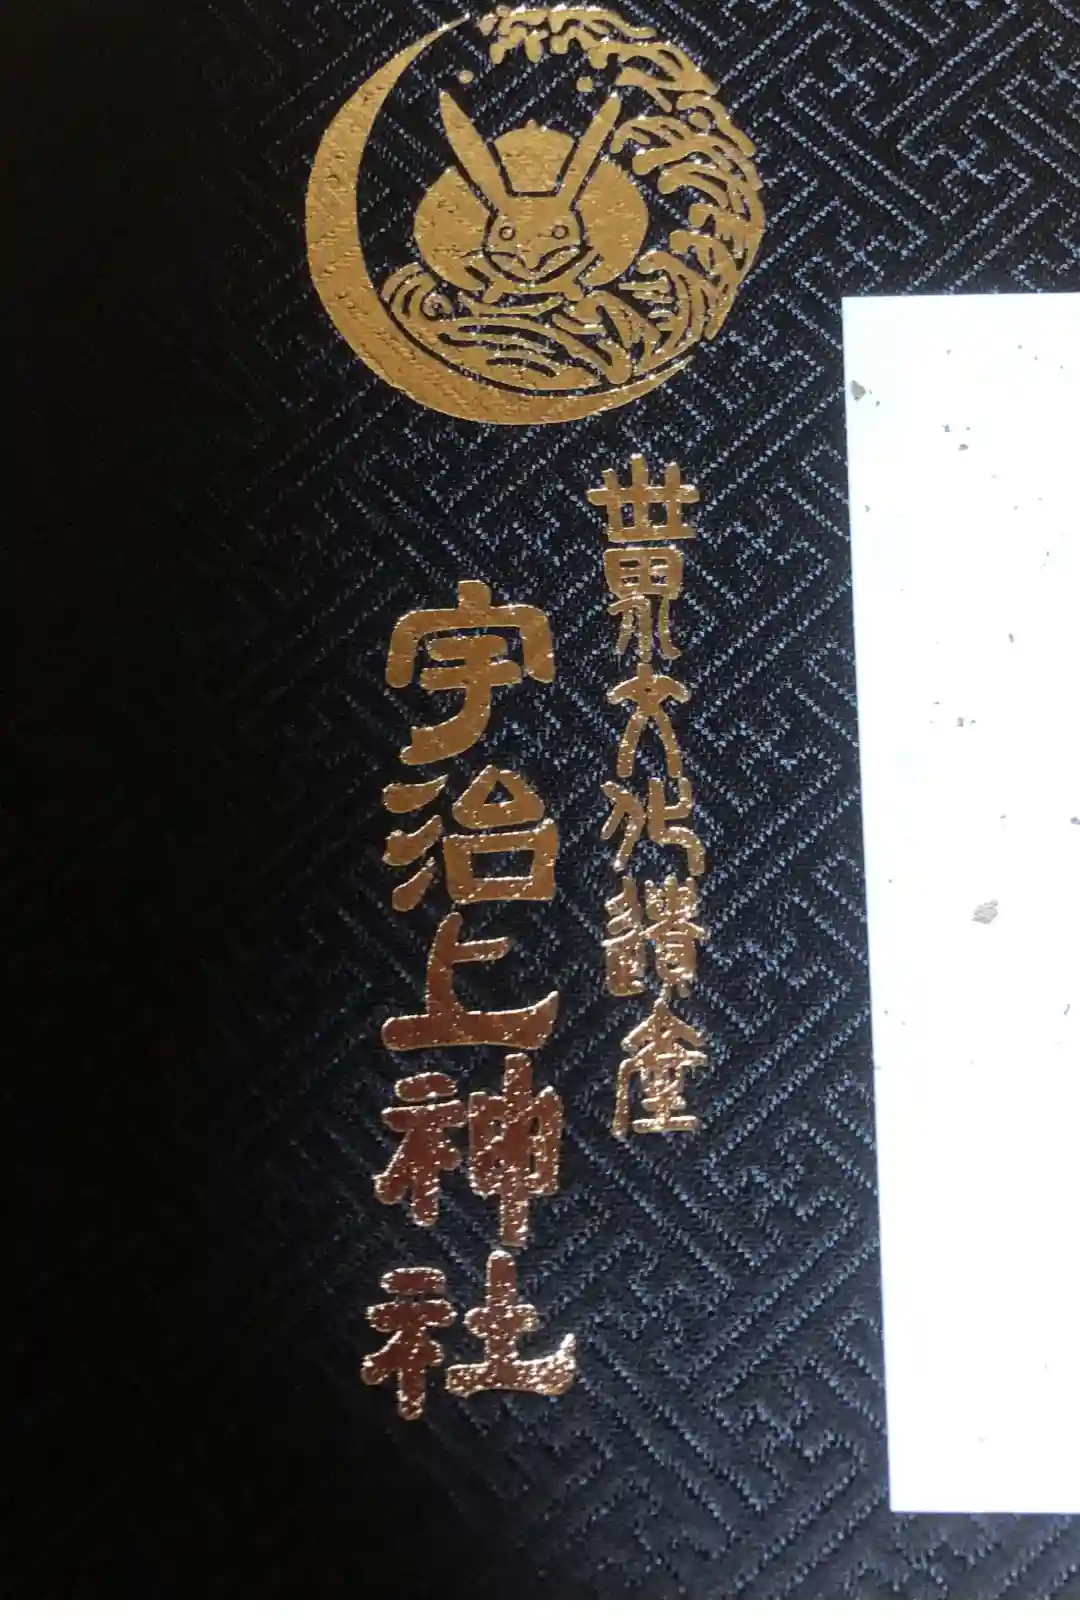 世界文化遺産
宇治上神社